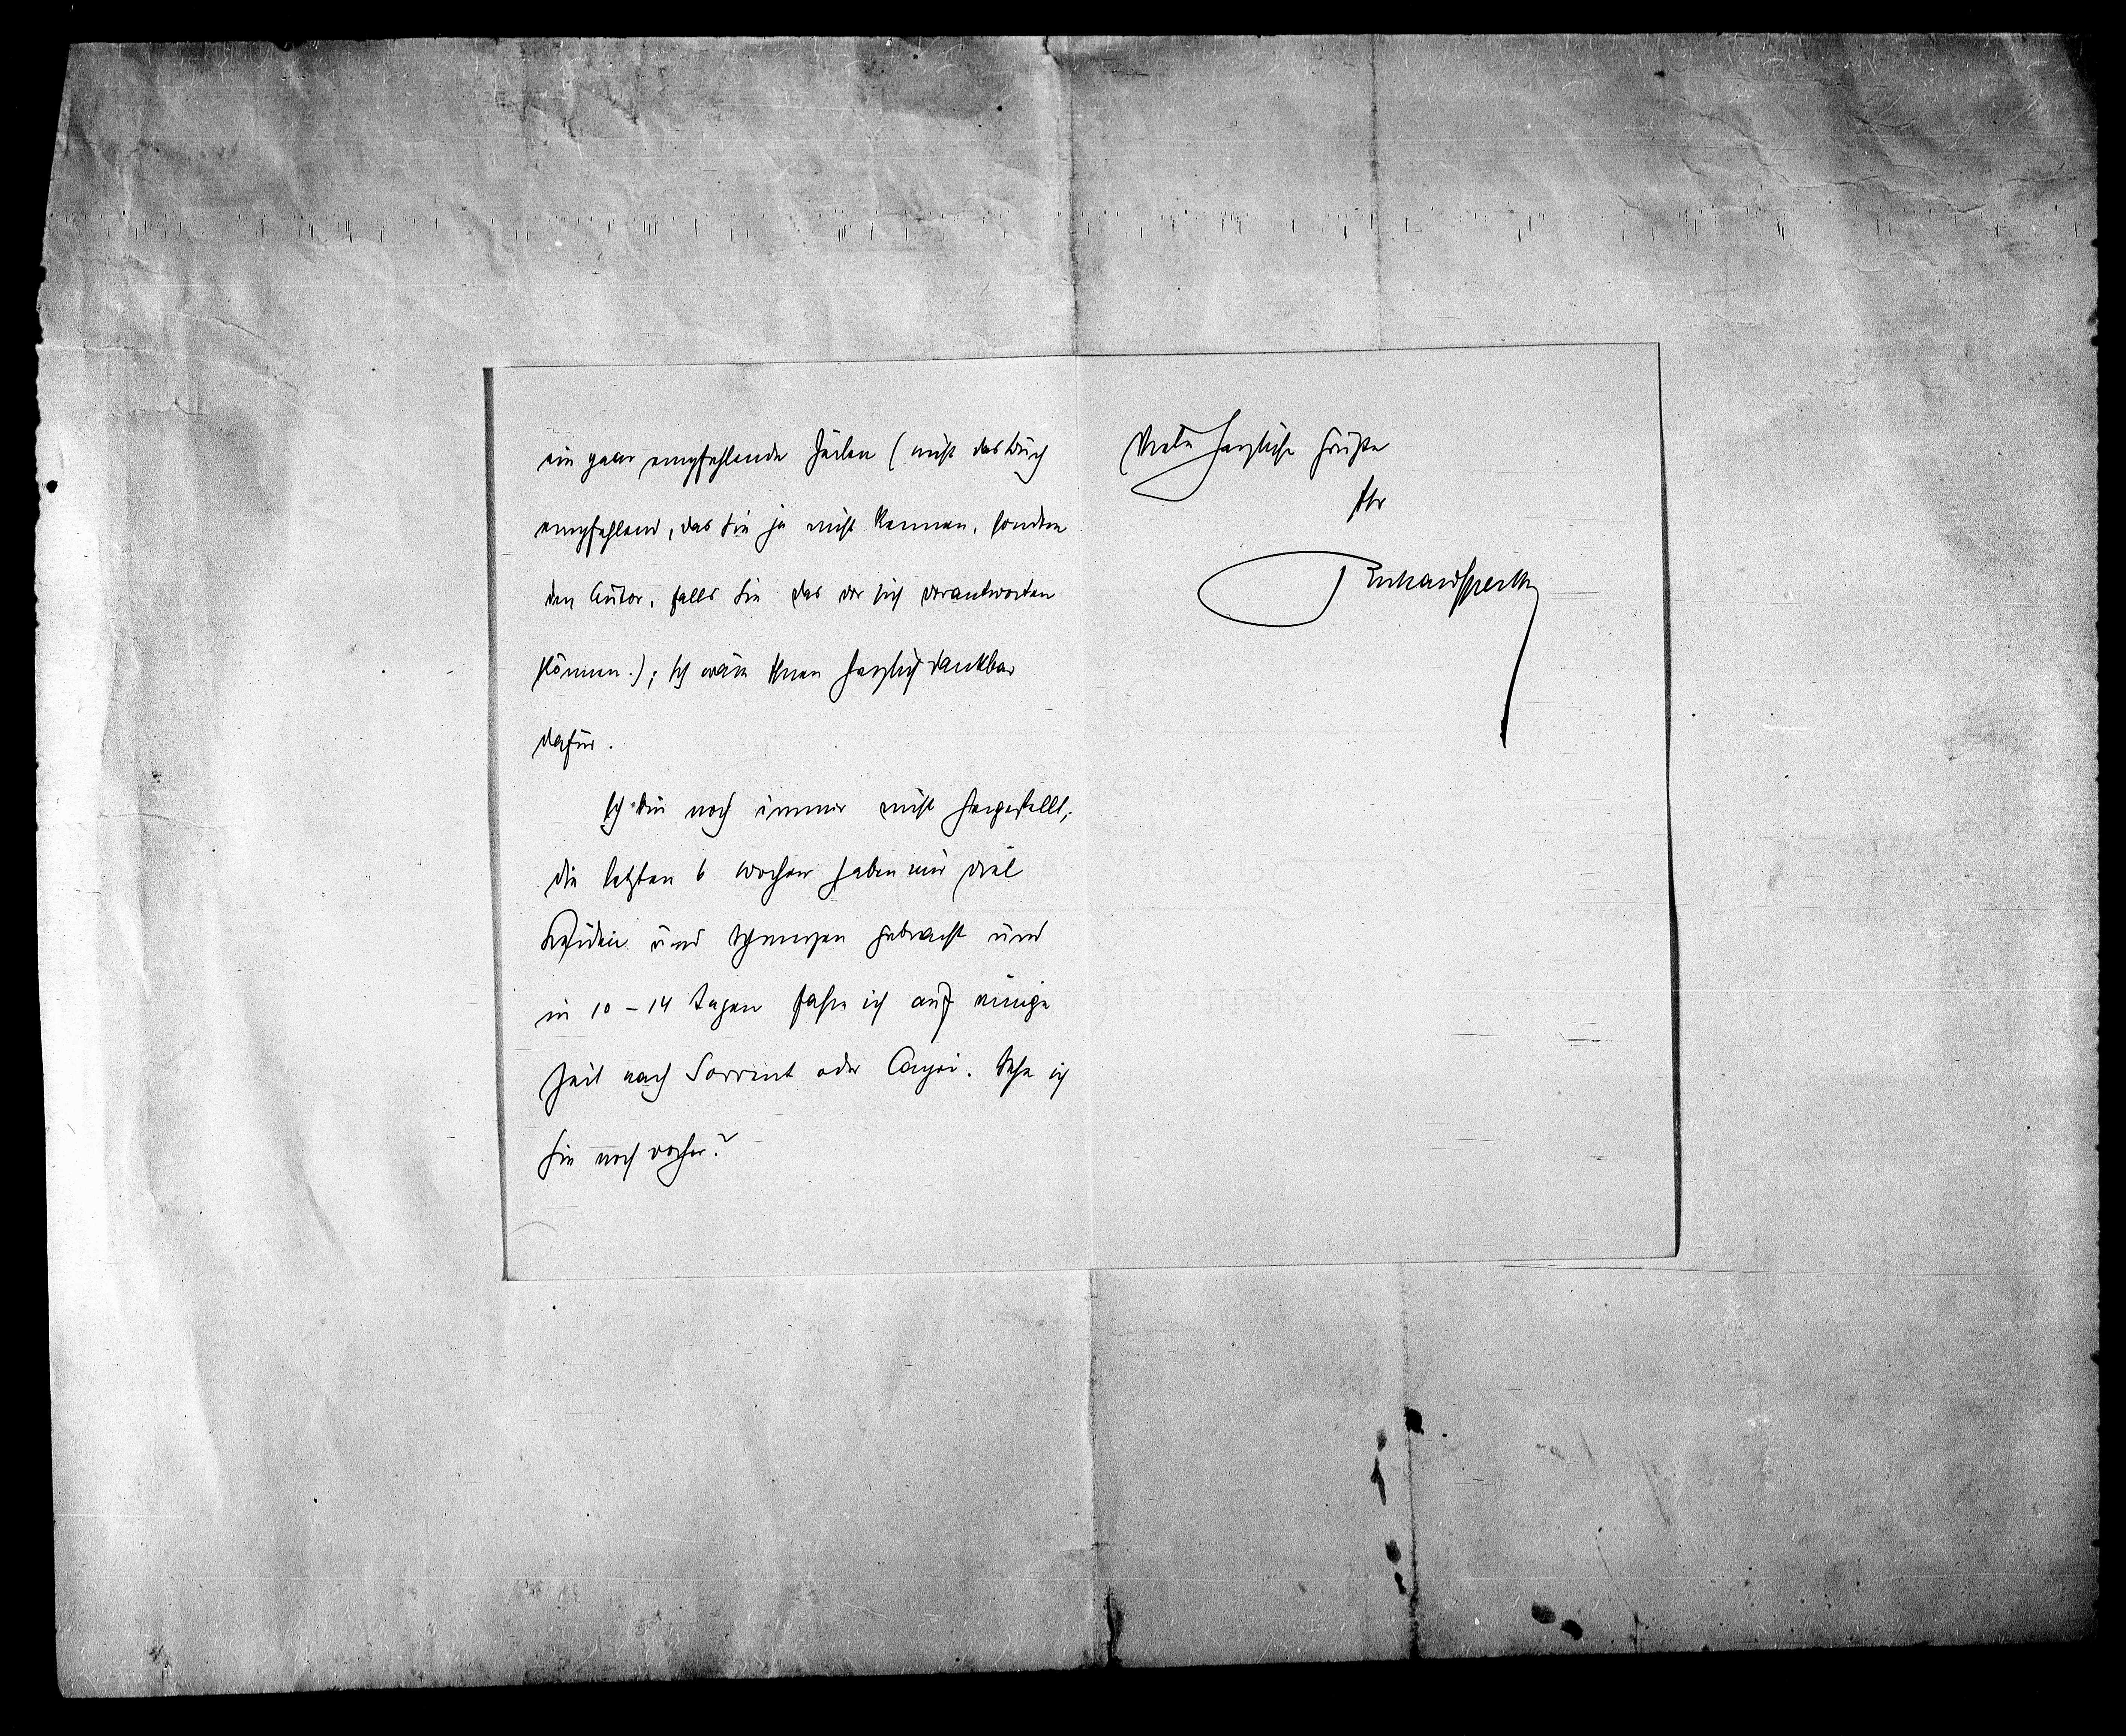 ein paar empfehlende Zeilen (nicht das Buch
empfehlend, das Sie ja nicht kennen, sondern
den Autor, falls Sie das vor sich verantworten
können.); ich wäre Ihnen herzlich dankbar
dafür.
Ich bin noch immer nicht hergestellt,
die letzten 6 Wochen haben mir viel
und Schmerzen gebracht und
in 10 – 14 Tagen fahre ich auf einige
Zeit nach Sorrent oder Capri. Sehe ich
Sie noch vorher?
Viele herzliche Grüße
Ihr